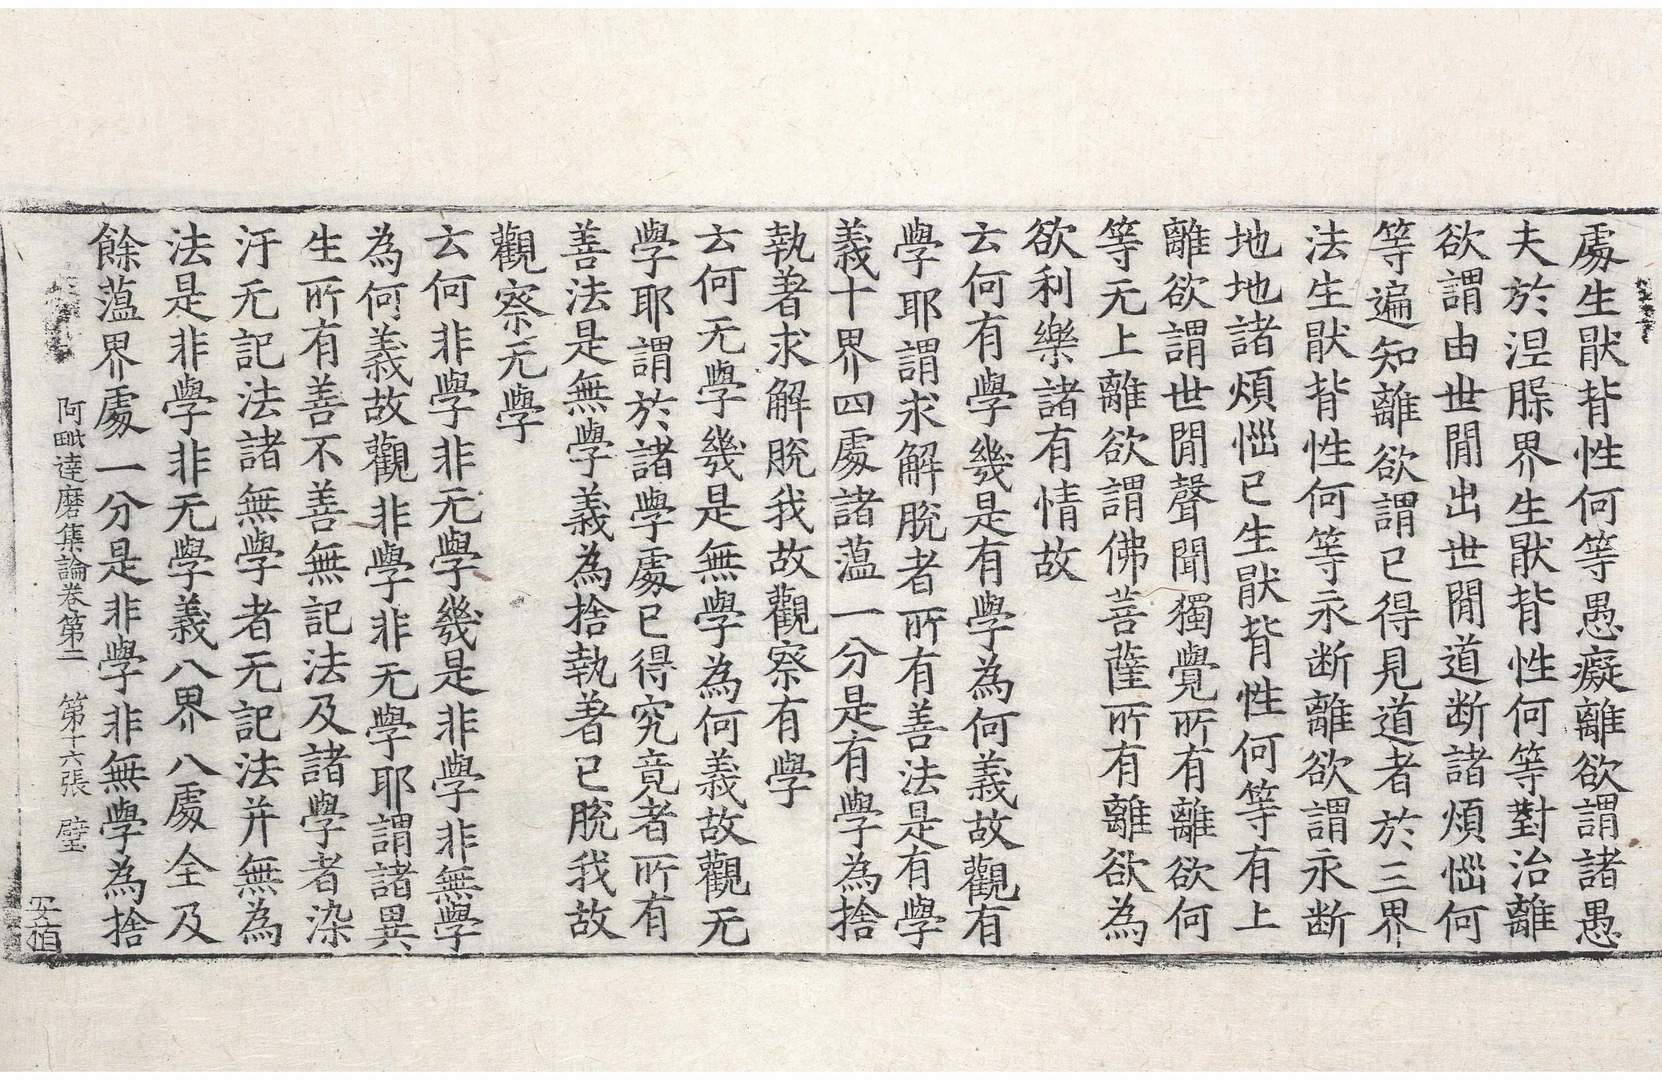 處生猒背性何等愚癡離欲謂諸愚
夫於涅槃界生猒背性何等對治離
欲謂由世閒出世閒道斷諸煩惱何
等遍知離欲謂已得見道者於三界
法生猒背性何等永断離欲謂永断
地地諸煩惱已生猒背性何等有上
離欲謂世閒聲聞獨覺所有離欲何
等无上離欲謂佛菩薩所有離欲為
欲利樂諸有情故
云何有學幾是有學為何義故觀有
學耶謂求解脫者所有善法是有學
義十界四處諸薀一分是有學為捨
執著求解脫我故觀察有學
云何无學幾是無學為何義故觀无
學耶謂於諸學處已得究竟者所有
善法是無學義為捨執著已脫我故
觀察无學
云何非學非无學幾是非學非無學
為何義故觀非學非无學耶謂諸異
生所有善不善無記法及諸學者染
汙无記法諸無學者无記法并無為
法是非學非无學義八界八處全及
餘薀界處一分是非學非無學為捨
阿毗達磨集論卷第二 第十六張 璧